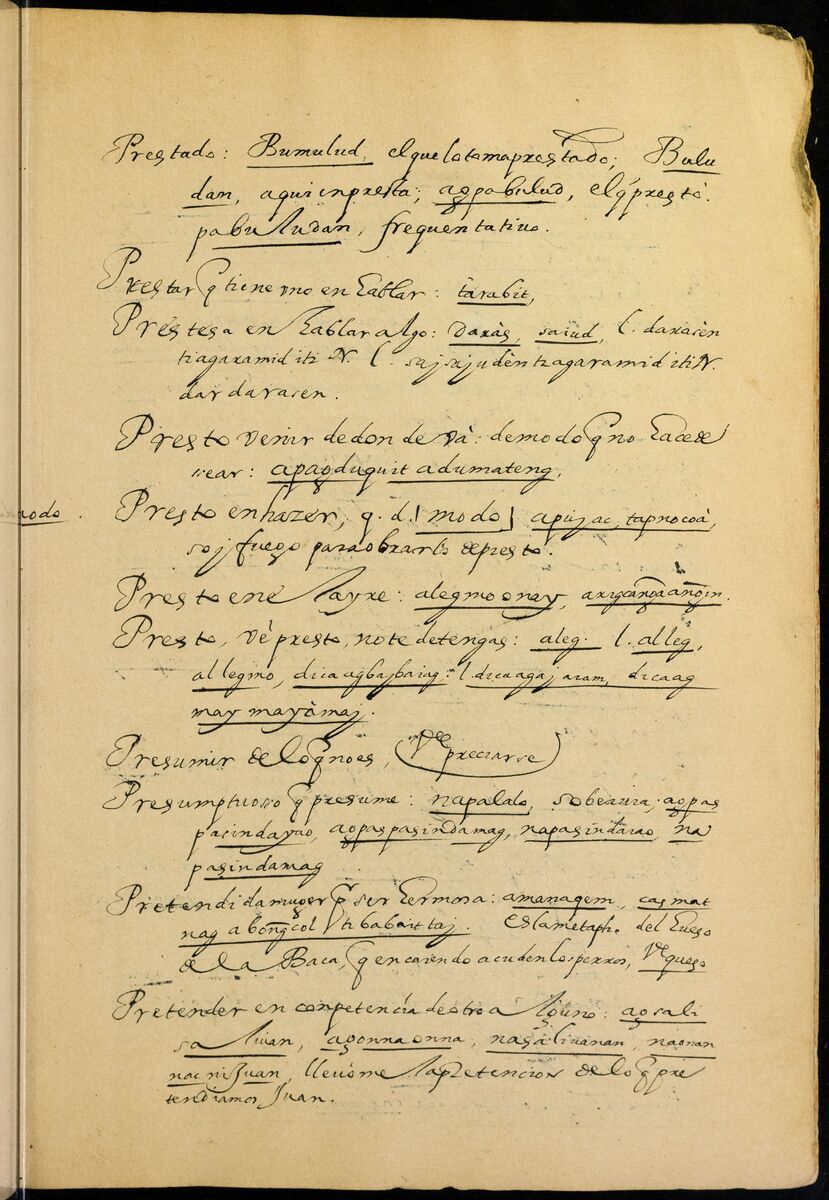 Prestado: Bumulud, el que lo toma prestado; Bulu
dan, a quien presta; agpabulud, el q̃ prestò.
pabuludan, frequentatiuo.
Prestar q̃ tiene vno en hablar: tarabit,
Presteza en hablar algo: daràs, saiud, l. darasèn
ti agaramid iti N. l. sajsajudèn ti agaramid iti N.
dardarasen.
Presto venir de donde và: de modo q̃ no hace de
sear: apagduguit adumateng,
Presto en hazer, q. d. | modo | apujac, tapnocoà,
soj fuego para obrarlo de presto.
nodo.
Presto en el ayre: alegmo onay, arigcanĝaanĝin.
Presto, vè presto, no te detengas: aleg. l. alleg,
allegmo, dica agbajbaiag: l. dica agajaiam, dicaag
maymayòmaj.
Presumir de lo q̃ no es, (Vee preciarse)
Presumptuoso q̃ presume: napalalo, soberuia, agpas
pasindayao, agpaspasindamag, napasindaiao, na
pasindamag
Pretendida muger pr̃ ser hermosa: amanagem, casmat
nag abonĝcol ti babait taj. es la metaph. del hueso
de la Baca, q̃ en caiendo acuden los perros, Ve. queso
Pretender en competencia de otro alguno: agsali
saliuan, agonnaonna, nagsaliuanan, naonan
nac ni Juan, lleuòme la pretencion de lo q̃ pre
tendiamos Juan.